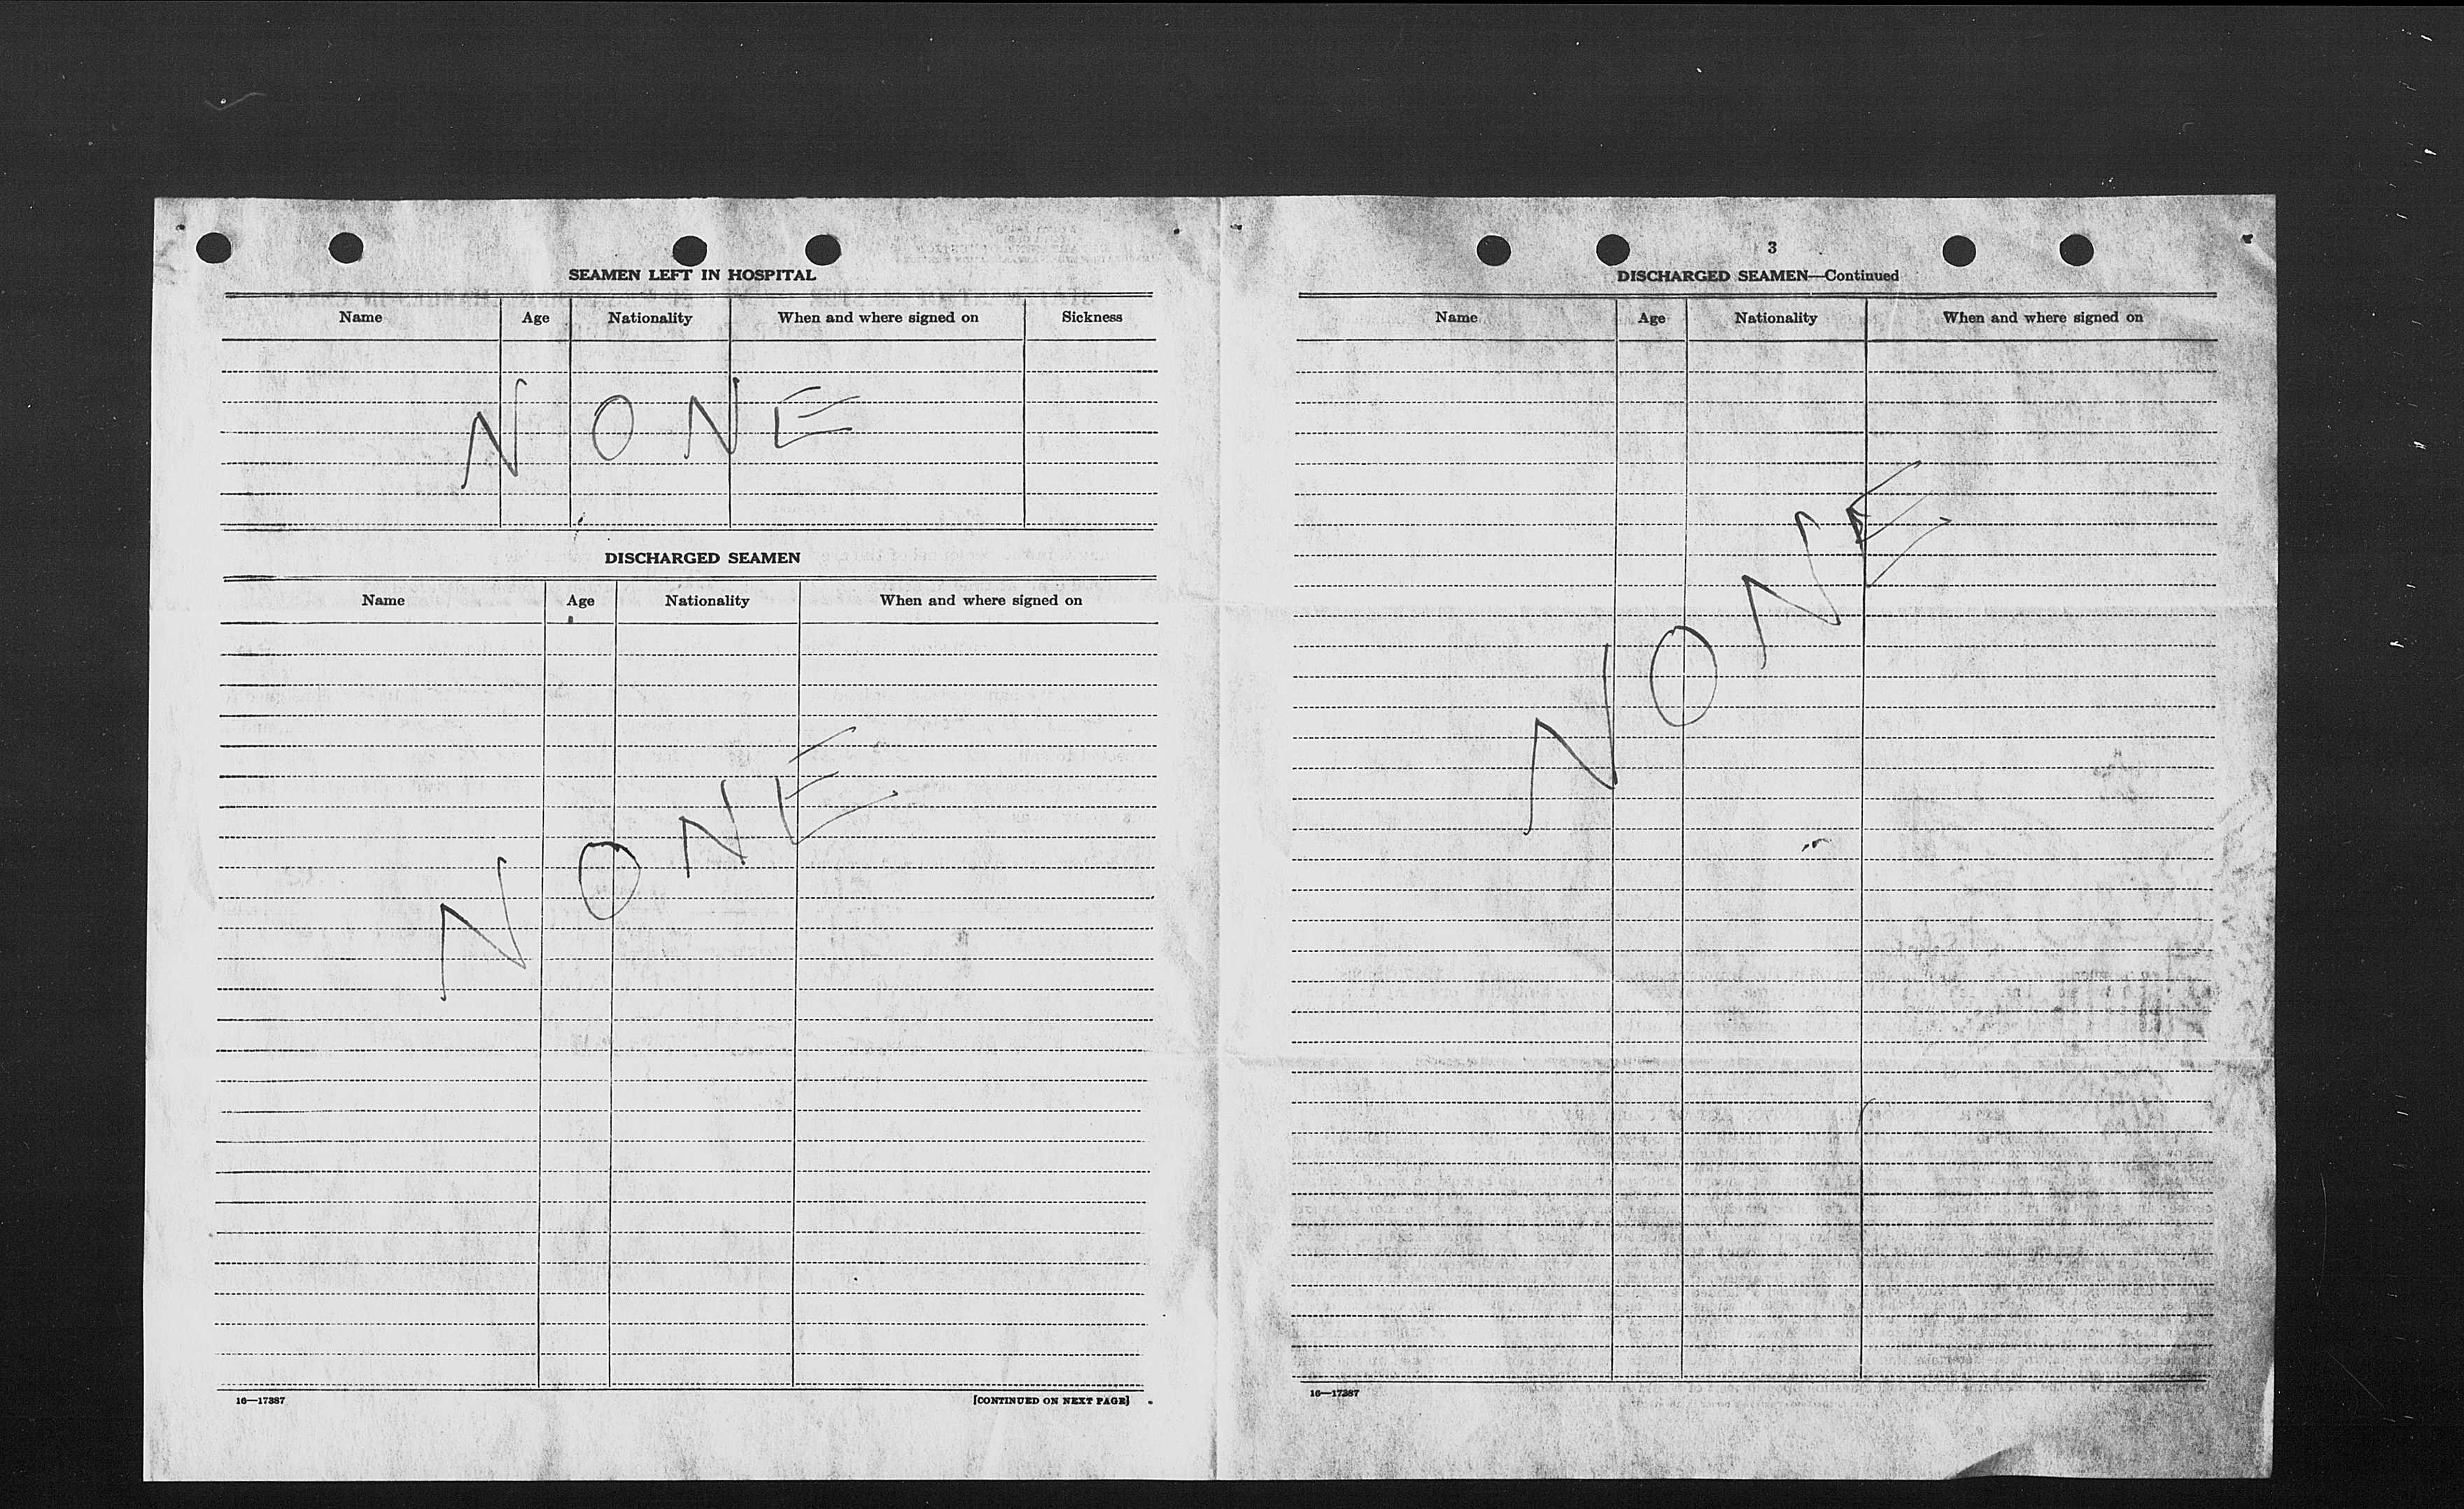 SEAMEN LEFT IN HOSPITAL
Name Age Nationality When and where signed on Sickness
NONE
DISCHARGED SEAMEN
Name Age Nationality When and where signed on
NONE
16—17387 [CONTINUED ON NEXT PAGE]
3
DISCHARGED SEAMEN—Continued
Name Age Nationality When and where signed on
NONE
16—17387